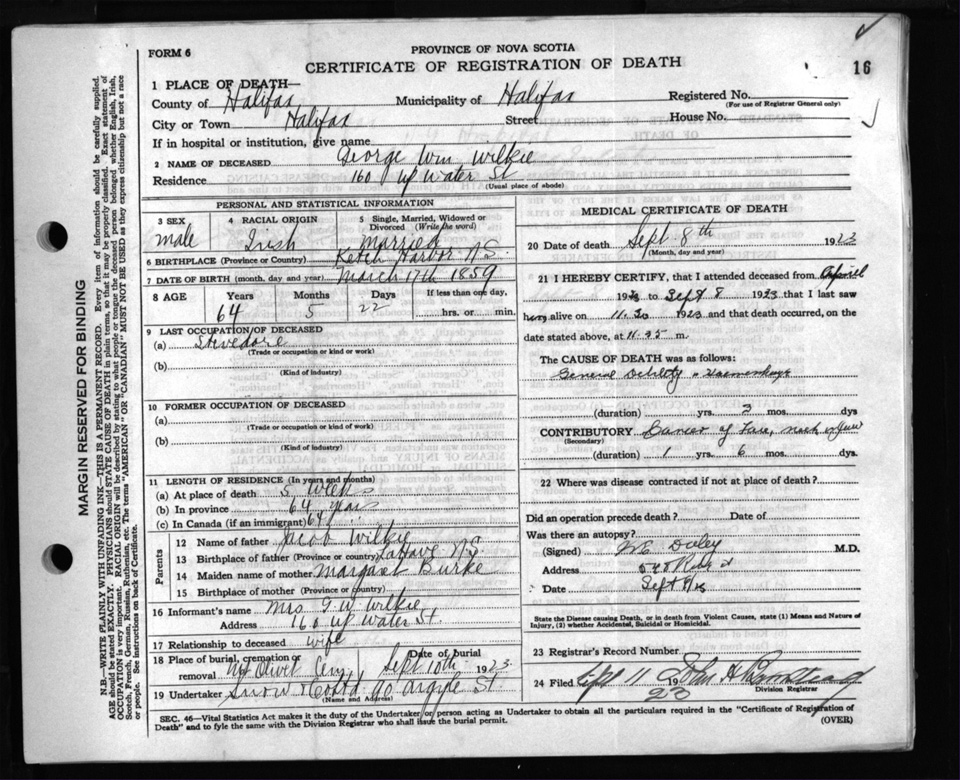 FORM 6
PROVINCE OF NOVA SCOTIA
CERTIFICATE OF REGISTRATION OF DEATH
16
1 PLACE OF DEATH—
County of Halifax Municipality of Halifax Registered No.
(For use of Registrar General only)
City or Town Halifax Street House No.
If in hospital or institution, give name
2 NAME OF DECEASED George Wm Wilkie
Residence 160 up Water St
(Usual place of abode)
PERSONAL AND STATISTICAL INFORMATION
3 SEX 4 RACIAL ORIGIN 5 Single, Married, Widowed or Divorced (Write the word)
male Irish Married
6 BIRTHPLACE (Province or Country) Ketch Harbor N.S.
7 DATE OF BIRTH (month, day and year) March 17th 1859
8 AGE Years Months Days If less than one day,
64 5 22 hrs. or min.
9 LAST OCCUPATION OF DECEASED
(a) Stevedore
(Trade or occupation or kind or work)
(b)
(Kind of industry)
10 FORMER OCCUPATION OF DECEASED
(a)
(Trade or occupation or kind or work)
(b)
(Kind of industry)
11 LENGTH OF RESIDENCE (In years and months)
(a) At place of death 5 Weeks
(b) In province 64 years
(c) In Canada (if an immigrant) 64
Parents
12 Name of father Jacob Wilkie
13 Birthplace of father (Province or country) LaHave N.S
14 Maiden name of mother Margaret Burke
15 Birthplace of mother (Province or country)
16 Informant's name Mrs G. W. Wilkie
Address 160 up Water St.
17 Relationship to deceased wife
18 Place of burial, cremation or removal Mt Olivet Cem Date of burial Sept 10th 1923
19 Undertaker Snow & Co Ltd 90 Argyle St.
(Name and Address)
MEDICAL CERTIFICATE OF DEATH
20 Date of death Sept 8th 1923
(Month, day and year)
21 I HEREBY CERTIFY, that I attended deceased from April
1923 to Sept 8 1923 that I last saw
him alive on 1923 and that death occurred, on the
date stated above, at 11.35 m.
The CAUSE OF DEATH was as follows:
General Debility & Haemorrhage
(duration) yrs. 3 mos. dys
CONTRIBUTORY Cancer of Face, neck
(Secondary)
(duration) 1 yrs. 6 mos. dys
22 Where was disease contracted if not at place of death?
Did an operation precede death? Date of
Was there an autopsy?
(Signed) M.D.
Address
Date Sept
State the Disease causing Death, or in death from Violent Causes, state (1) Means and Nature of
Injury, (2) whether Accidental, Suicidal or Homicidal.
23 Registrar's Record Number
24 Filed Sept 11 1923 John H
Division Registrar
SEC. 46—Vital Statistics Act makes it the duty of the Undertaker or person acting as Undertaker to obtain all the particulars required in the "Certificate of Registration of
Death" and to fyle the same with the Division Registrar who shall issue the burial permit.
(OVER)
MARGIN RESERVED FOR BINDING
N.B.—WRITE PLAINLY WITH UNFADING INK—THIS IS A PERMANENT RECORD. Every item of information should be carefully supplied.
AGE should be stated EXACTLY. PHYSICIANS should STATE CAUSE OF DEATH in plain terms, so that it may be properly classified. Exact statement of
OCCUPATION is very important. RACIAL ORIGIN will be described by stating to what people or tongue the deceased person belonged whether English, Irish,
Scotch, French, German, Russian, Ruthenian, etc. The terms "AMERICAN" OR "CANADIAN" MUST NOT BE USED as they express citizenship but not a race
or people. See instructions on back of Certificate.